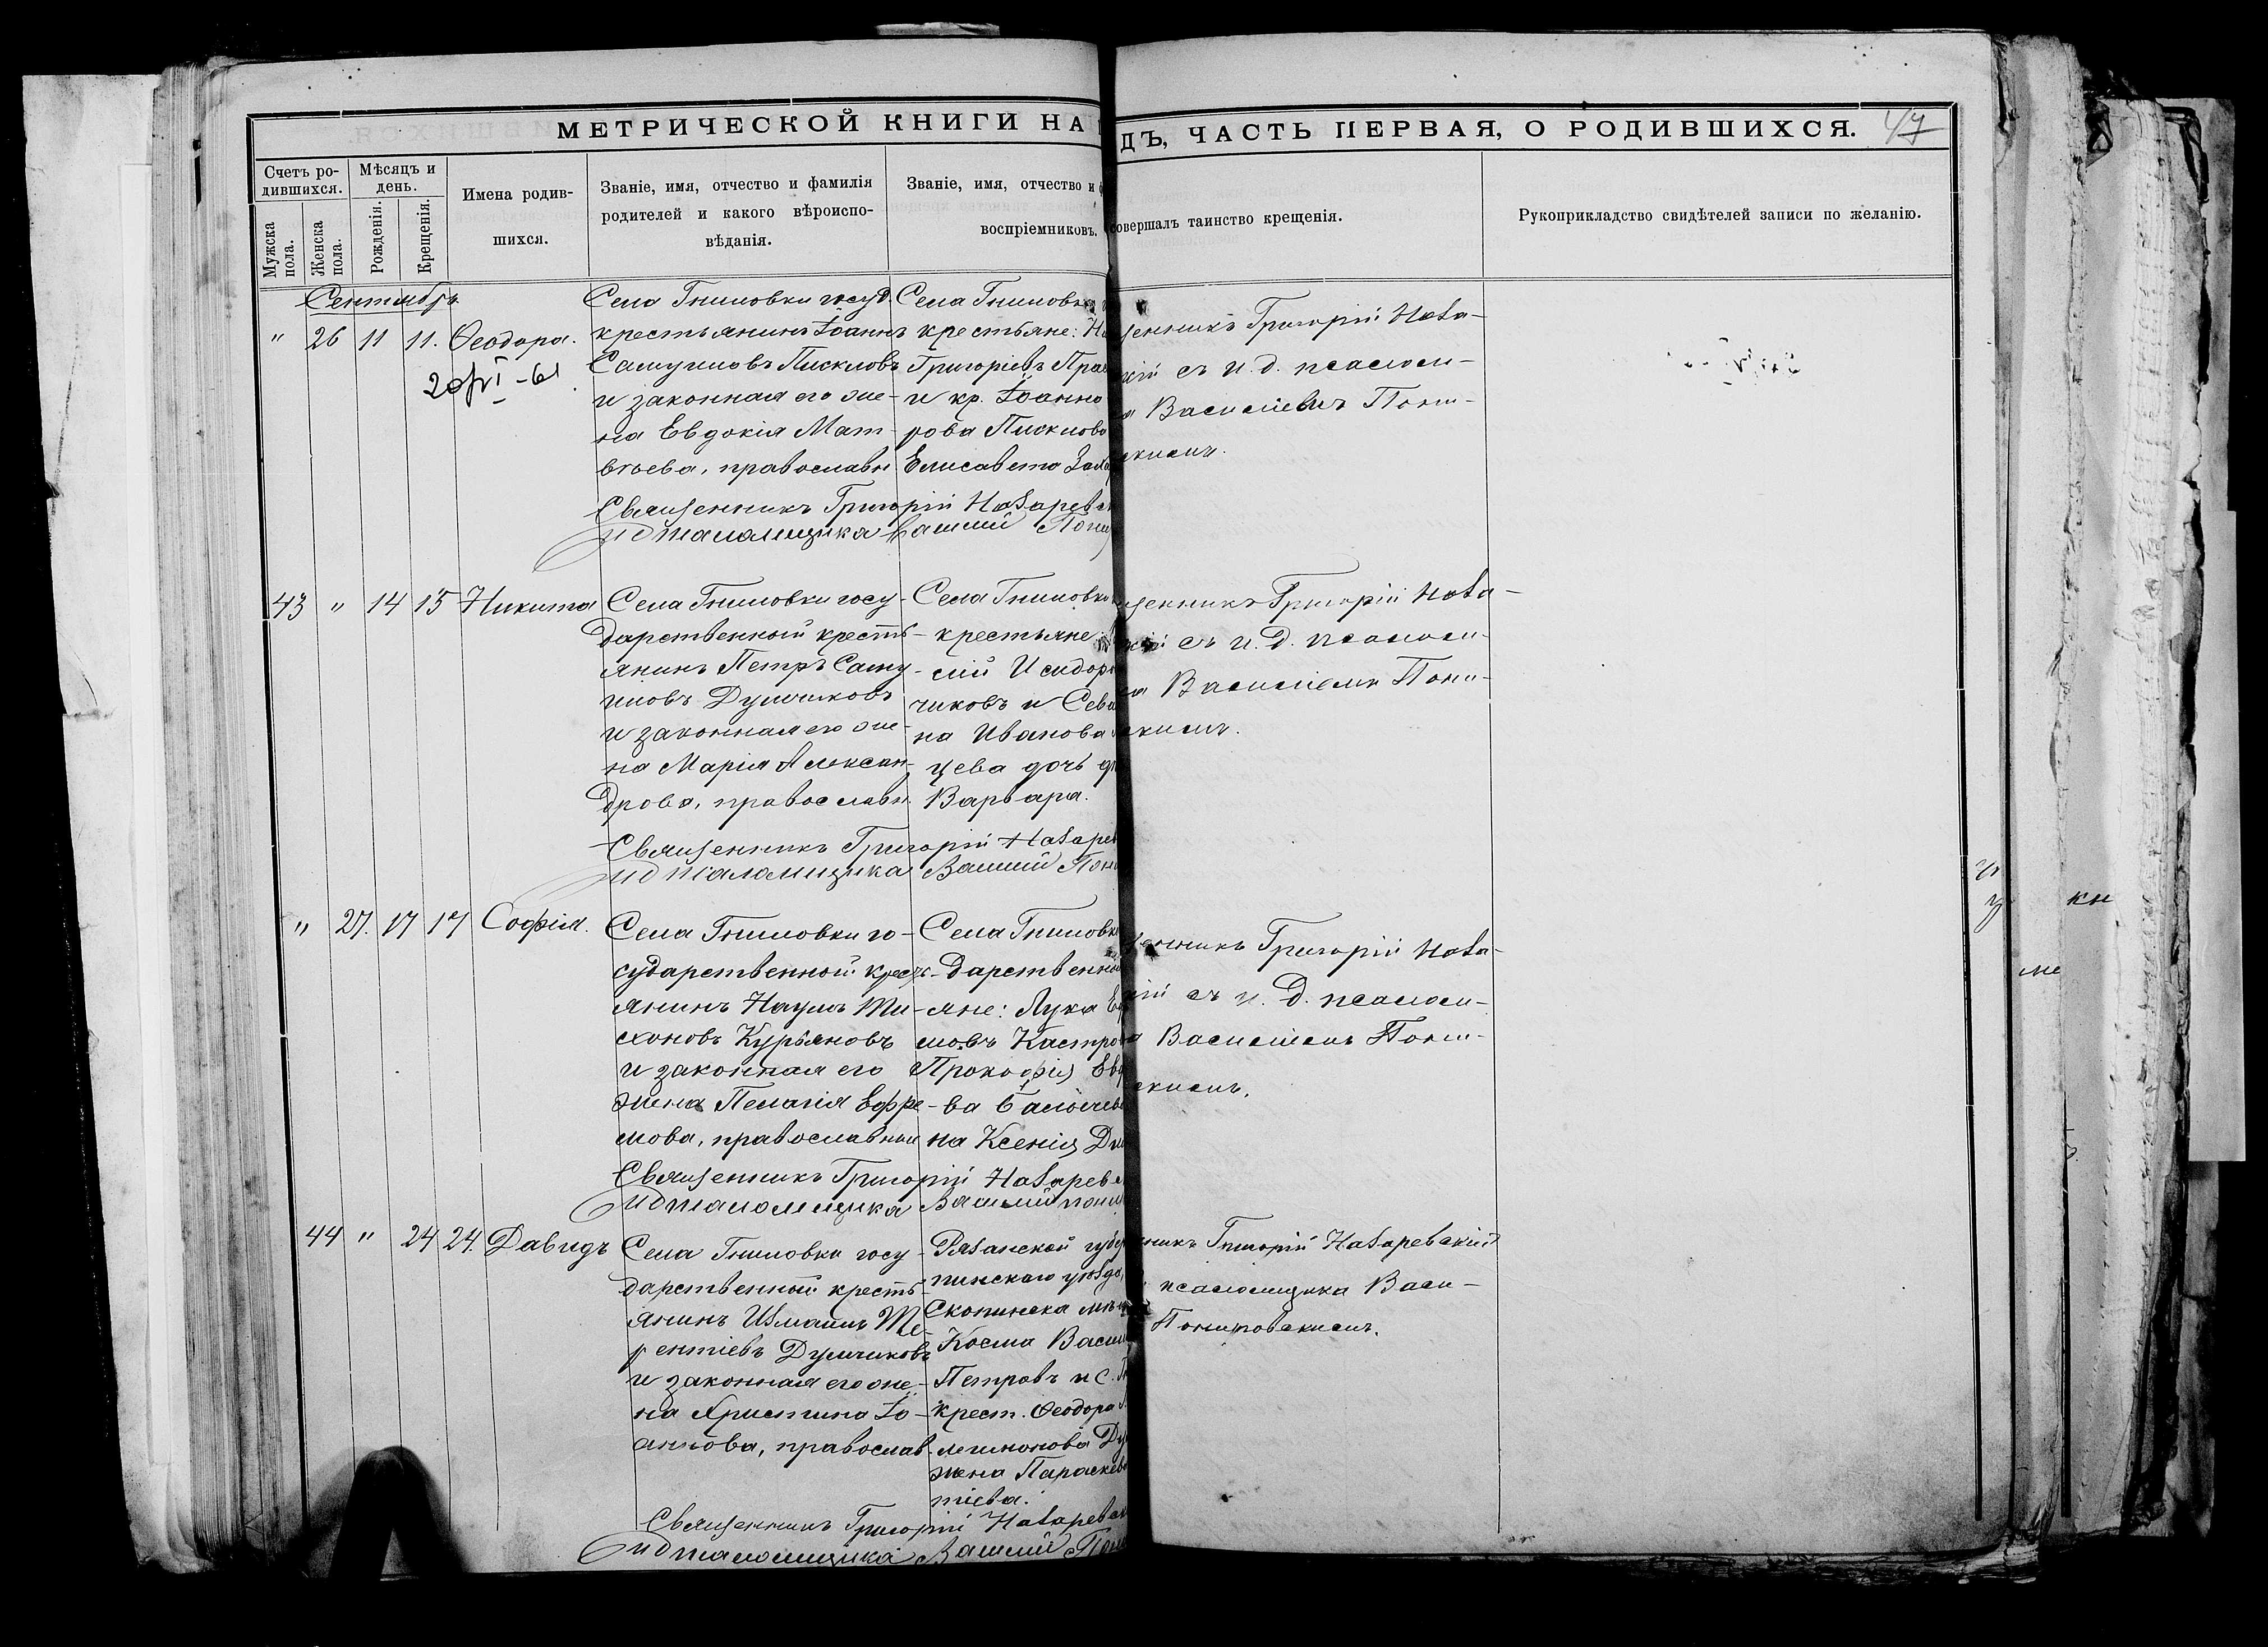 МЕТРИЧЕСКОЙ КНИГИ НА
ДЪ, ЧАСТЬ ПЕРВАЯ, О РОДИВШИХСЯ.
47
Счетъ ро-
дившихся.
Мужска
пола.
Женска
пола.
Мѣсяцъ и
день.
Рожденія.
Крещенія.
Имена родив-
шихся.
Званіе, имя, отчество и фамилія
родителей и какого вѣроиспо-
вѣданія.
Званіе, имя, отчество и
воспріемниковъ.
совершалъ таинство крещенія.
Рукоприкладство свидѣтелей записи по желанію.
Сентябрь
" 26 11 11. Ѳеодора.
Села Гниловки госуд.
крестьянинъ Іоаннъ
Самуиловъ Пискловъ
и законная его же-
на Евдокія Мат-
вѣева, православн
Села Гниловки
крестьяне:
Григоріевъ
и кр. Іоанна
рова Писклова
Елисавета
Григорій Наза-
кій съ и. д. псалом-
Васильевичъ Пони-
скимъ.
Священникъ Григорій Назаревс
ид псаломщика Василій Пони
43 " 14 15 Никита
Села Гниловки госу-
дарственной кресть-
янинъ Петръ Саму-
иловъ Думчиковъ
и законная его же-
на Марія Алексан-
дрова, православн.
Села Гниловки
крестьяне
сій Исидор
чиковъ и
на Иванова
цева дочь
Варвара.
Григорій Наза-
кій съ и. д. псалом-
Василіемъ Пони-
скимъ.
Священникъ Григорій Назарев
ид псаломщика Василій Пони
" 27. 17 17 Софія.
Села Гниловки го-
сударственной крест-
янинъ Наумъ Ти-
хоновъ Курьяновъ
и законная его
жена Пелагія Ефре-
мова, православныи
Села Гниловки
дарственной
яне: Лука
мовъ
Прокофія
ва
на Ксенія
Григорій Наза-
кій съ и. д. псалом-
Василіемъ Пони-
скимъ.
Священникъ Григорій Назаревс
ид псаломщика Василій Пони
44 " 24 24. Давидъ
Села Гниловки госу-
дарственной кресть-
янинъ Измаилъ Те-
рентіевъ Думчиковъ
и законная его же-
на Христина Іо-
аннова, православ.
Рязанской губер
пинскаго уѣзда,
Скопинска
Косма Васил
Петровъ и с.
крест. Ѳеодора
лимонова
жена Параскева
тіева.
Григорій Назаревскій
псаломщика Васи-
Понятовскимъ.
Священникъ Григорій Назаревск
ид псаломщика Василій Пони